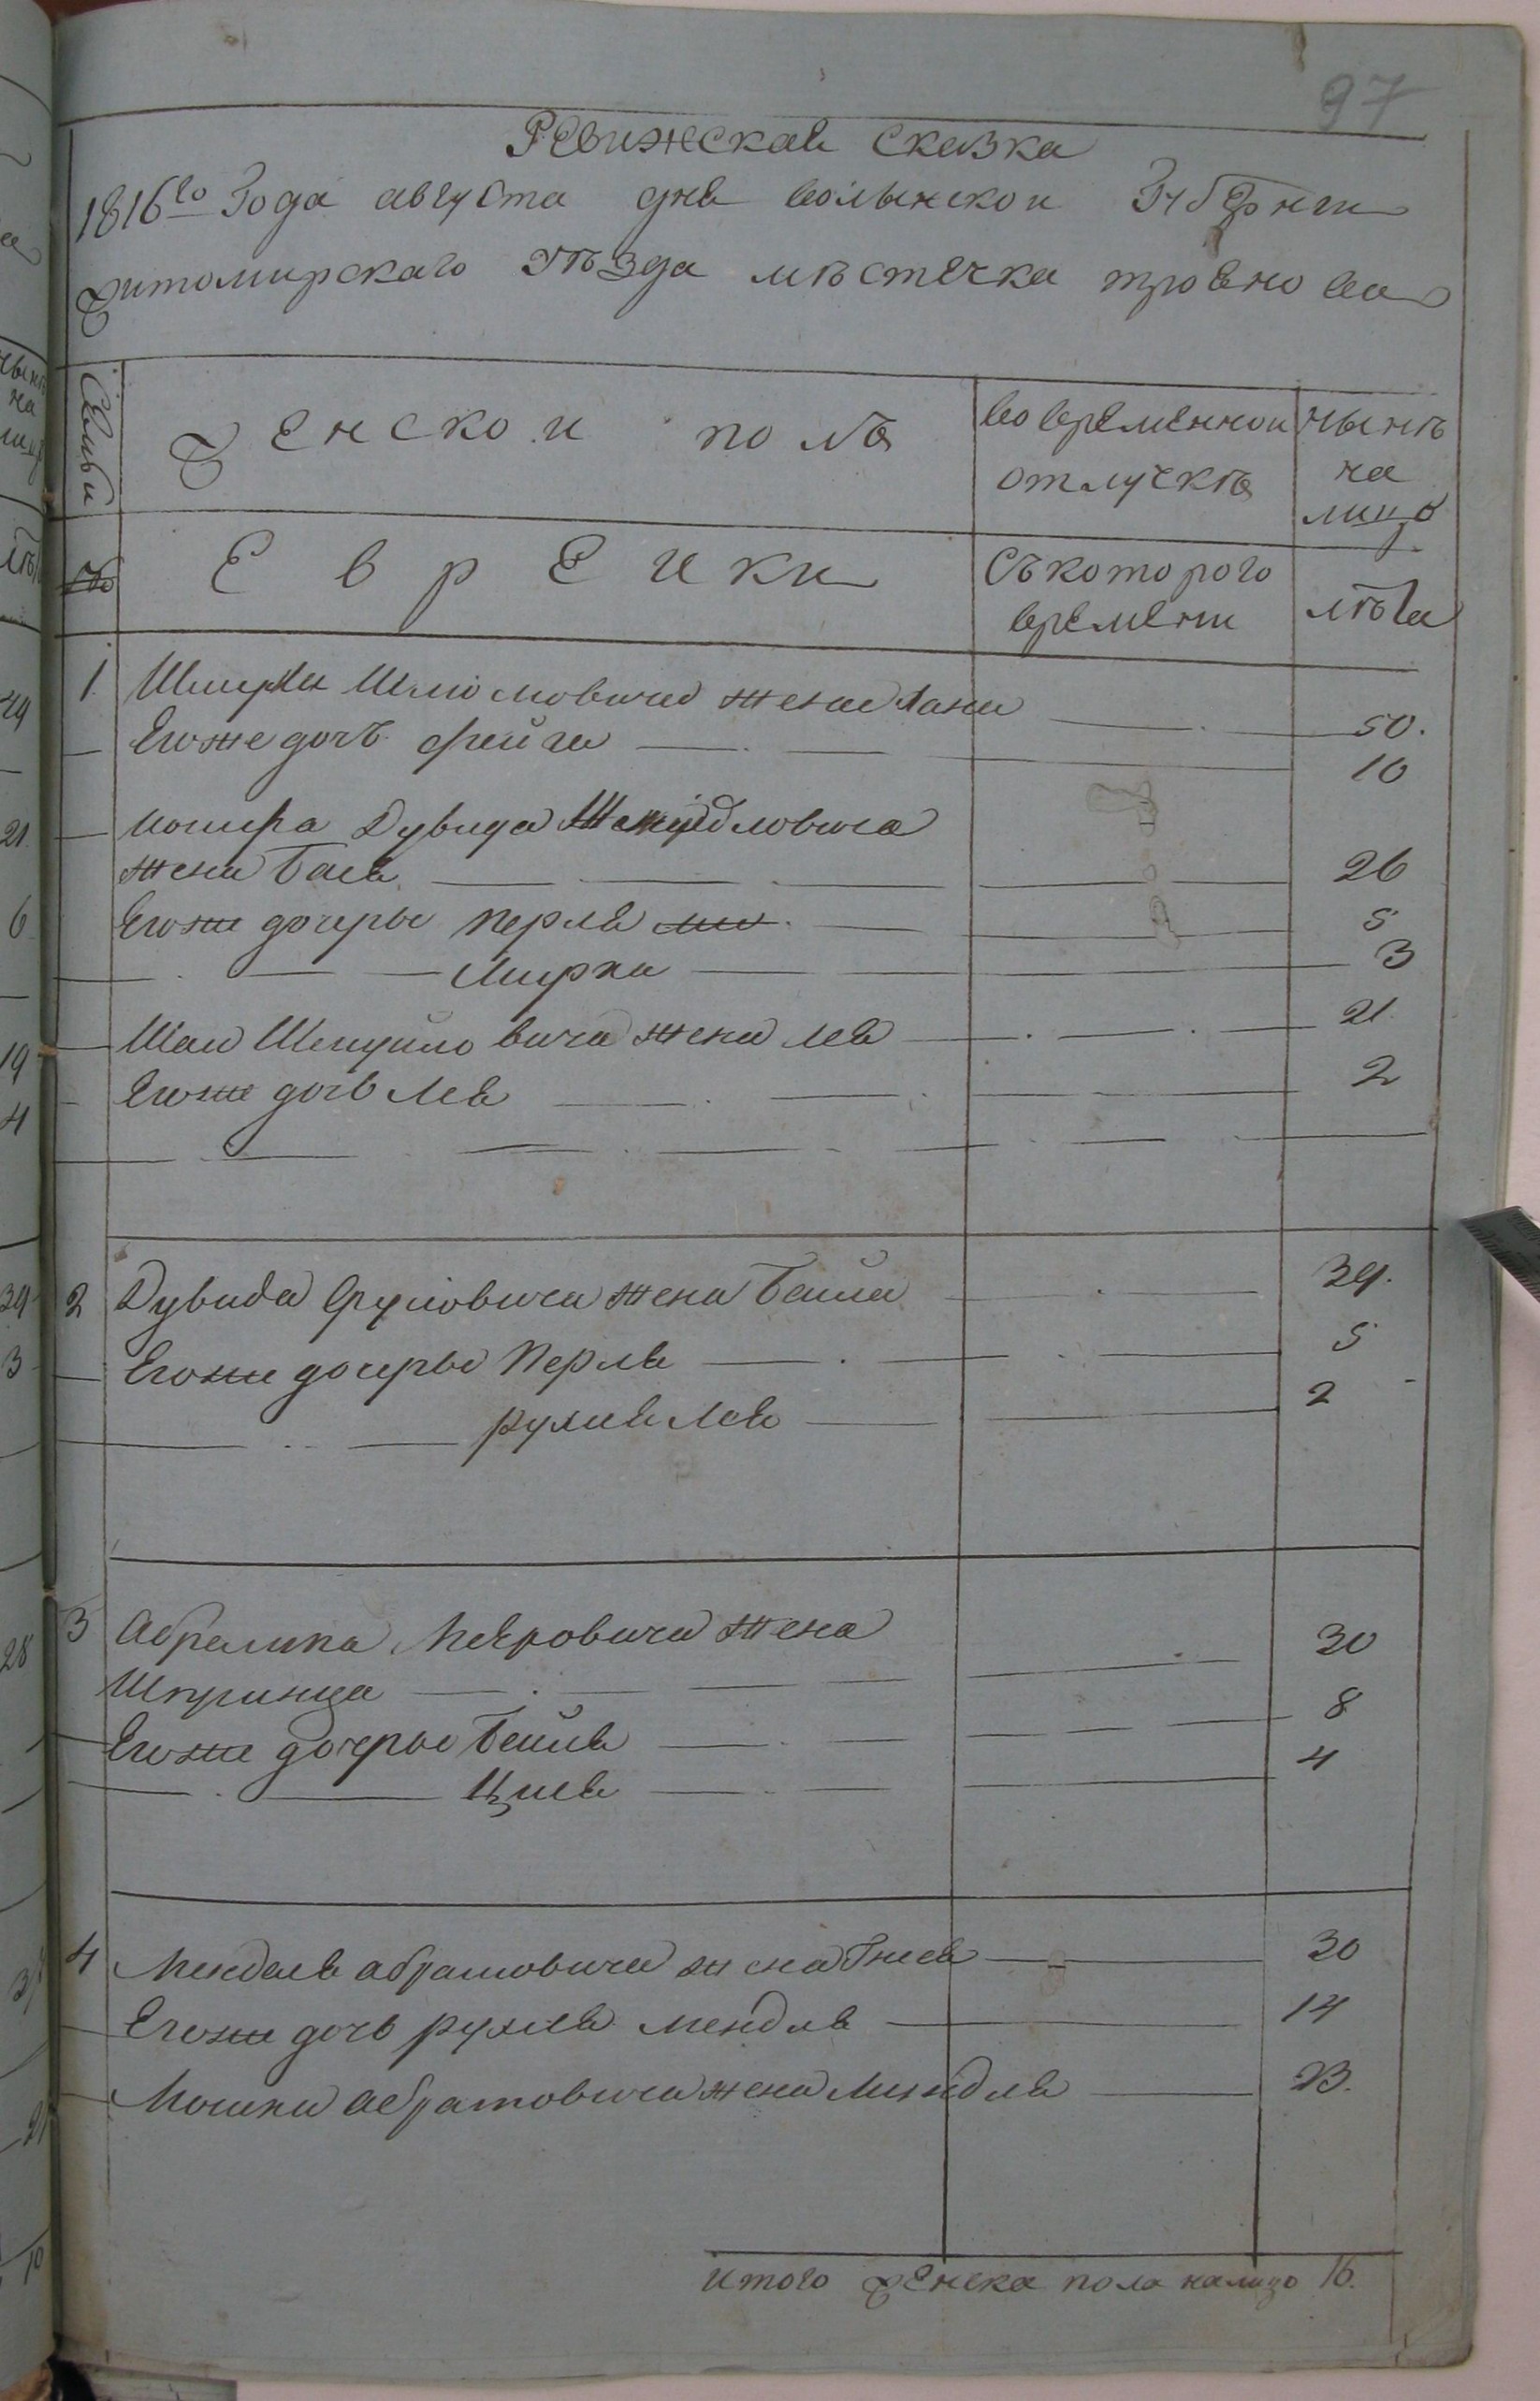 97
Ревижская сказка
1816го Года августа дня волынской Губернии
Житомирскаго уѣзда мѣстечка троянова
Семьи
Женской полъ
во временной
отлучкѣ
нынѣ
на
лицо
№
Еврейки
Съкоторого
времени
лѣта
1. жена Хана 50.
Егоже дочь фейга 10
Дувида
жена Бася 26
Егоже дочери Перля 5
Мирка 3
Шмуйловича жена Лея 21
Егоже дочь Лея 2
2 Дувида Сруловича жена Бейла 39.
Егоже дочери Перля 5
рухля Лея 2
3 Абрамка Меяровича жена
Шпринца 30
Егоже дочери Бейля 8
Циля 4
4 Менделя абрамовича жена Гнеся 30
Егоже дочь рухля мендля 14
Мошки абрамовича жена Миндля 23.
итого женска пола налицо 16.